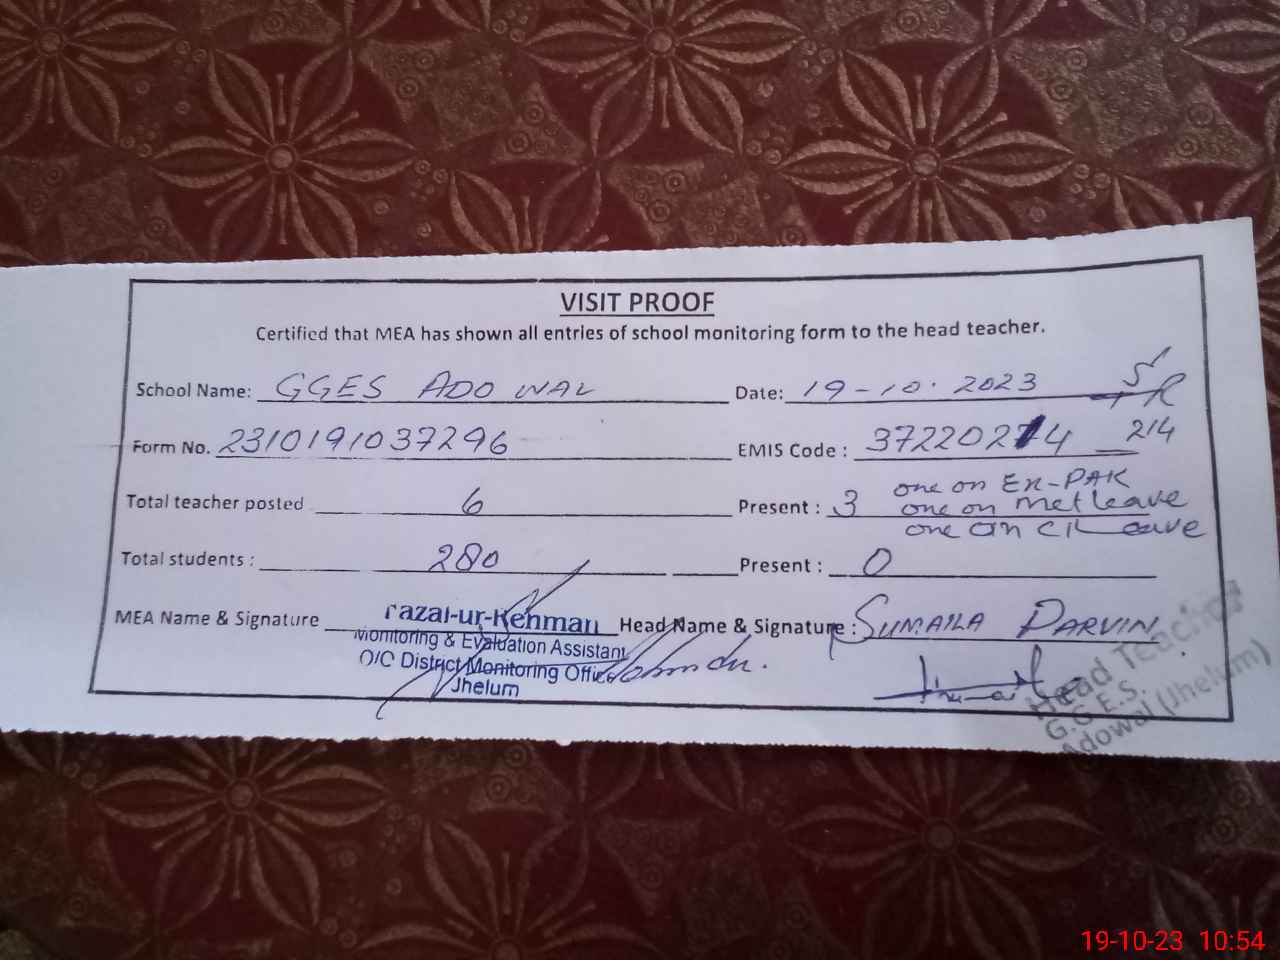 VISIT PROOF
Certified that MEA has shown all entries of school monitoring form to the head teacher.
School Name: GGES ADOWAL Date: 19-10-2023
Form No. 2310191037296 EMIS Code : 37220214 214
Total teacher posted 6 Present : 3 one on Ex-PAK
one on Met leave
one on C/Leave
Total students : 280 Present : 0
MEA Name & Signature Fazal-ur-Rehman Head Name & Signature : SUMAILA PARVIN
Monitoring & Evaluation Assistant
O/O District Monitoring Office
Jhelum
Head Teacher
G.G.E.S.
Adowal (Jhelum)
19-10-23 10:54